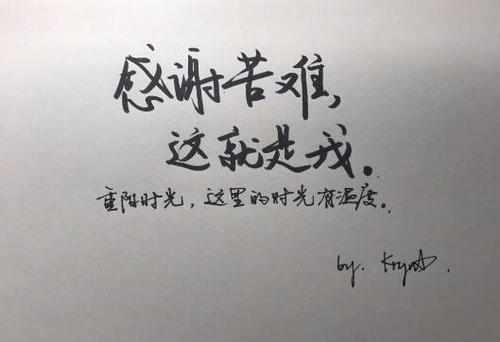 感谢苦难,
这就是我。
重阳时光，这里的时光有温度。
by.